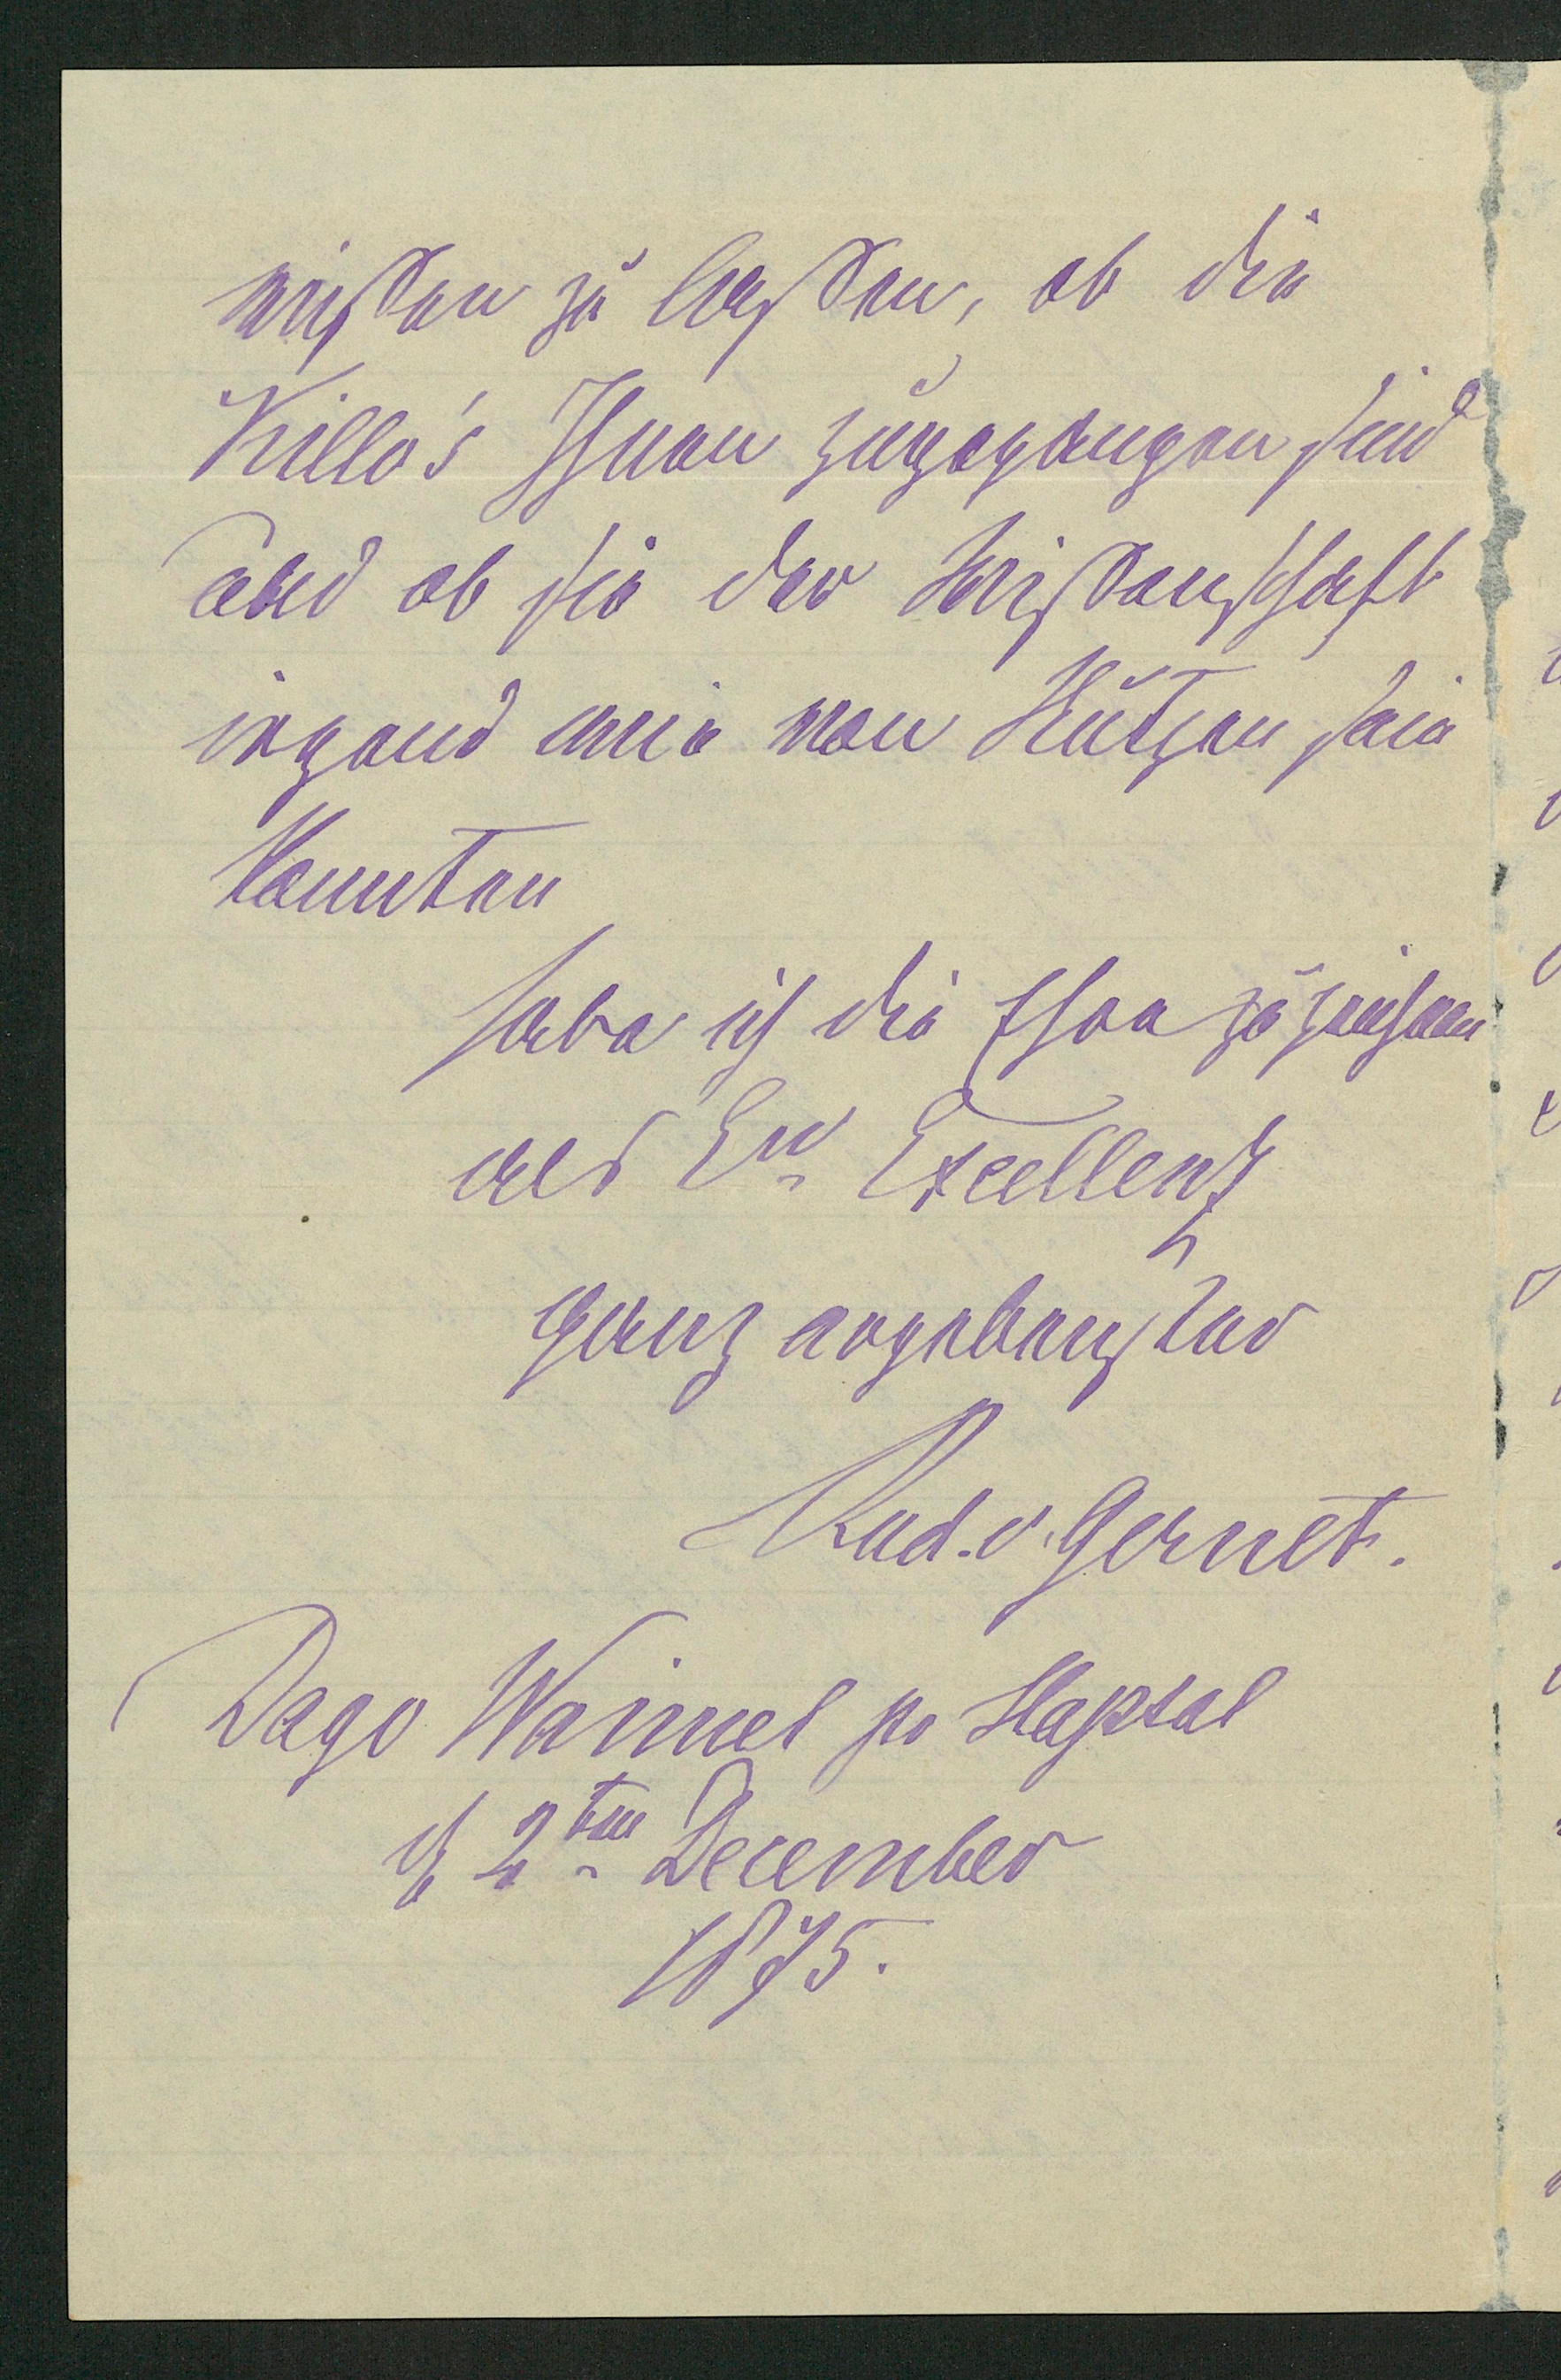 wissen zu lassen, ob die
Killo's Ihnen zugegangen sind
und ob sie der Wissenschaft
irgend wie von Nutzen sein
konnten
habe ich die Ehre zu zeichnen
als Ew. Excellenz
ganz ergebenster
Rud. v. Gernet.
Dago Waimel pr Hapsal
d 2ten December
1875.